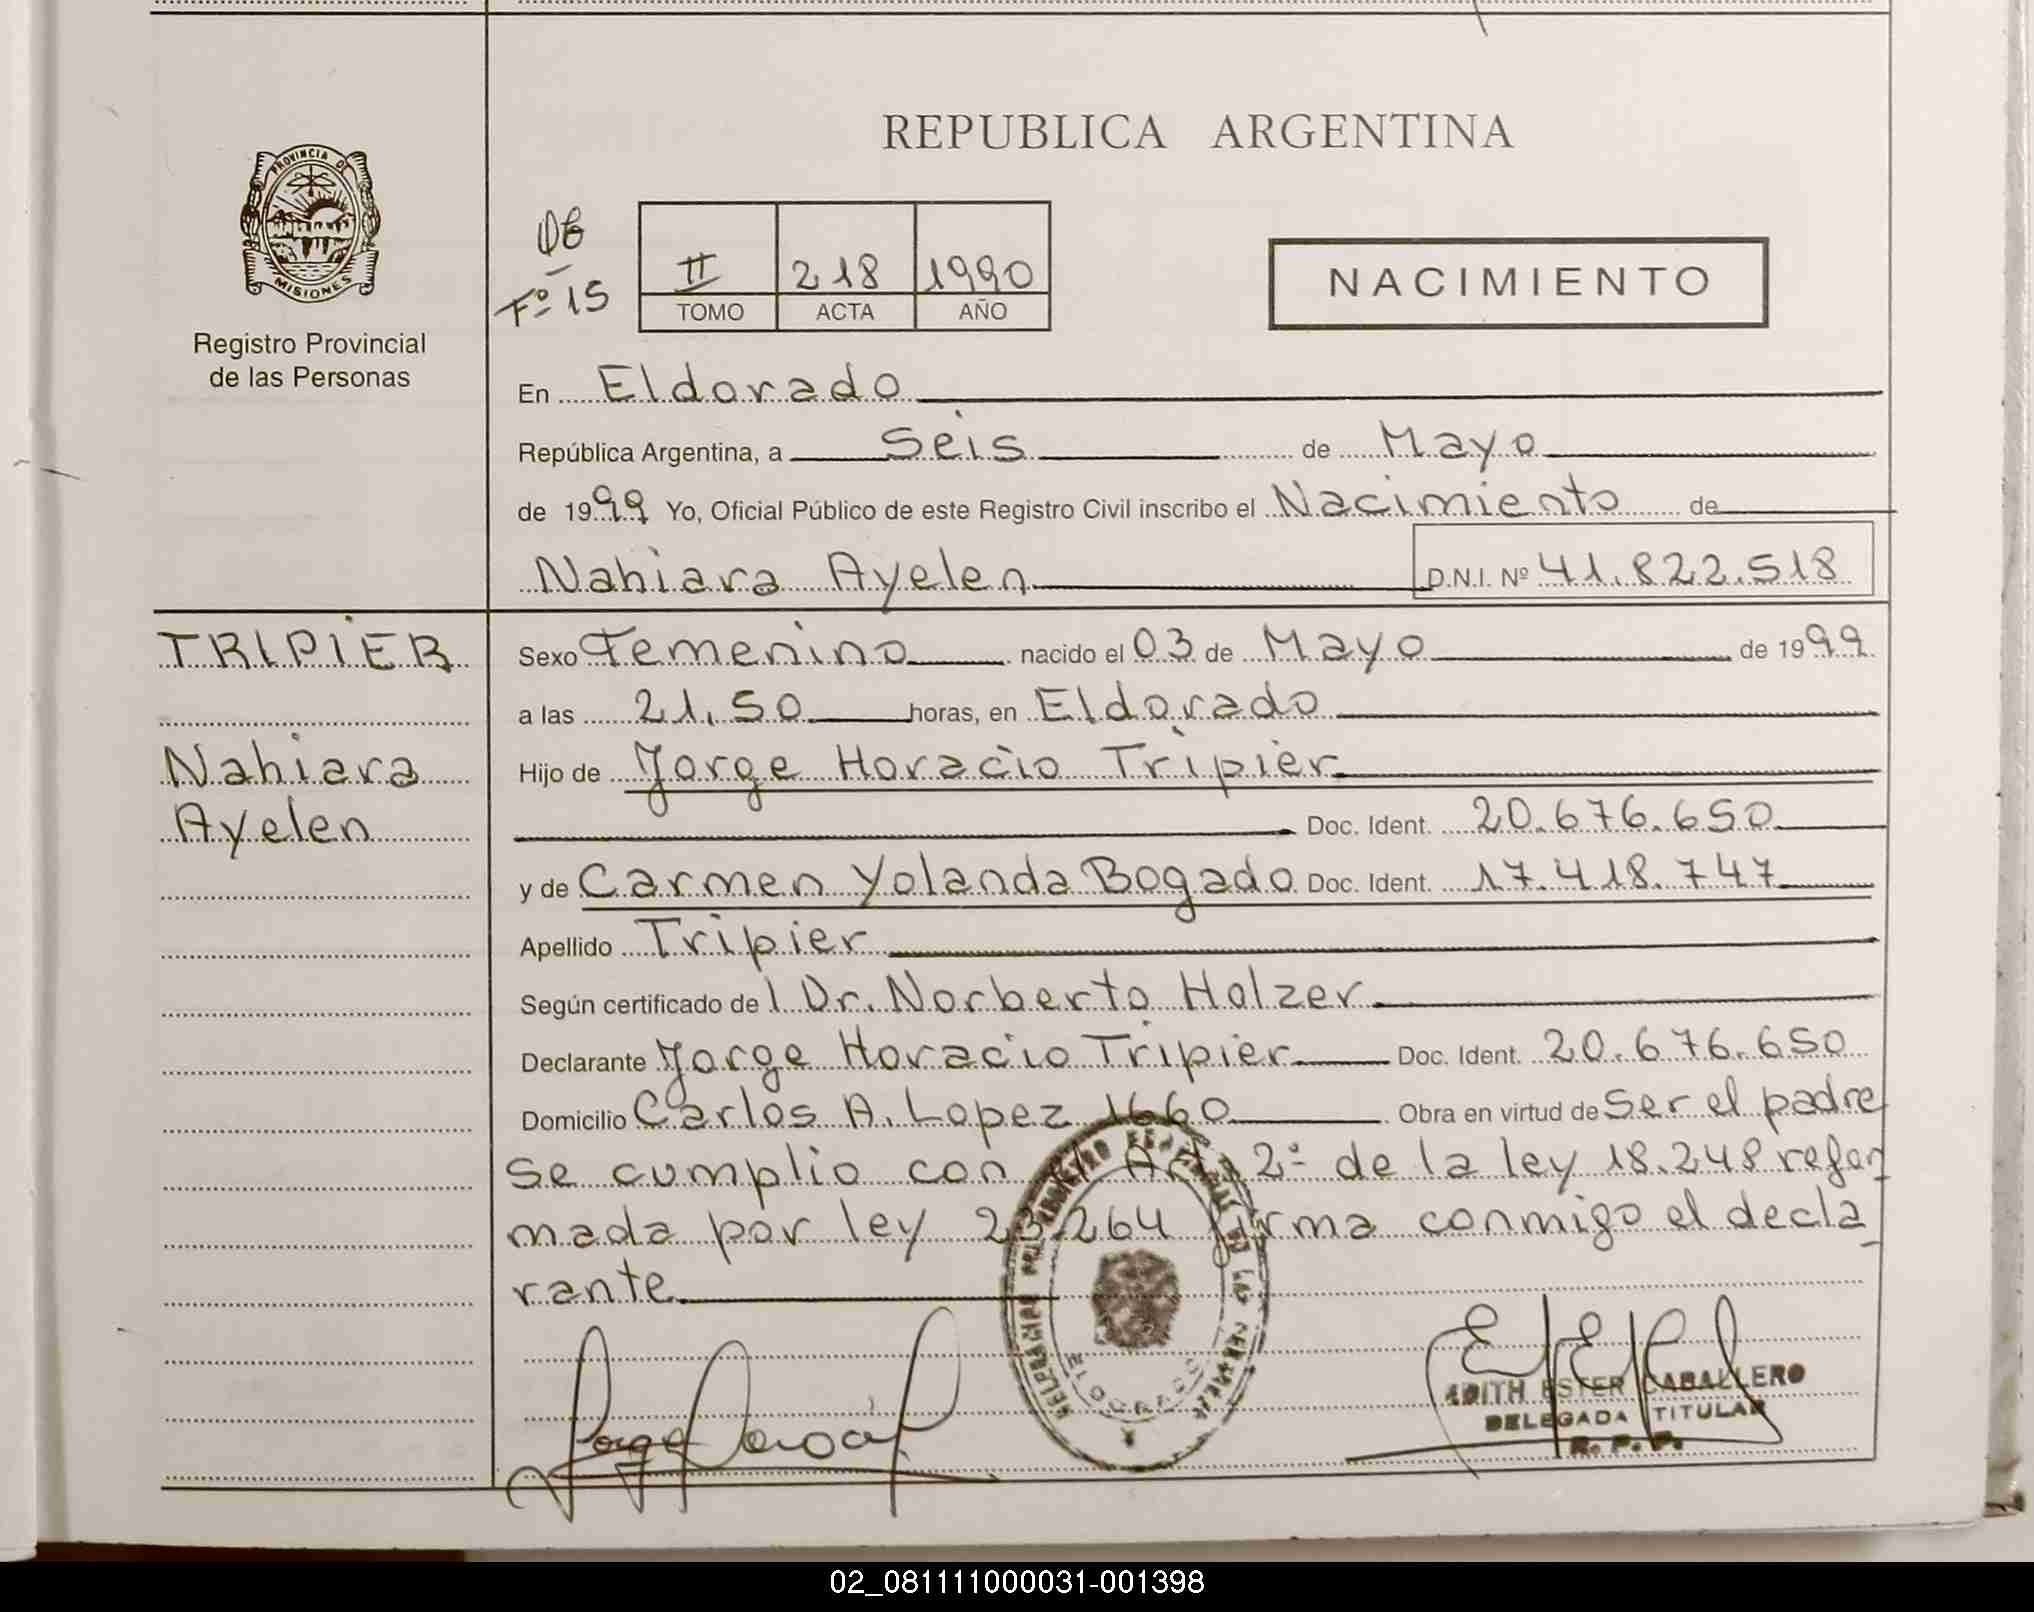 REPUBLICA ARGENTINA
PROVINCIA DE
MISIONES
Registro Provincial
de las Personas
06
Fº 15
II 218 1990
TOMO ACTA AÑO
NACIMIENTO
En Eldorado
República Argentina, a Seis de Mayo
de 1999 Yo, Oficial Público de este Registro Civil inscribo el Nacimiento de
Nahiara Ayelen D.N.I. Nº 41.822.518
TRIPIER
Nahiara
Ayelen
Sexo Femenino nacido el 03 de Mayo de 1999
a las 21,50 horas, en Eldorado
Hijo de Jorge Horacio Tripier
Doc. Ident. 20.676.650
y de Carmen Yolanda Bogado Doc. Ident. 17.418.747
Apellido Tripier
Según certificado de l Dr. Norberto Holzer
Declarante Jorge Horacio Tripier Doc. Ident. 20.676.650
Domicilio Carlos A. Lopez 1660 Obra en virtud de Ser el padre
se cumplio con el Art 2º de la ley 18.248 refor
mada por ley 23.264 firma conmigo el decla
rante
DE LAS PERSONAS
ELDORADO
EDITH ESTER CABALLERO
DELEGADA TITULAR
R. P. P.
02_081111000031-001398